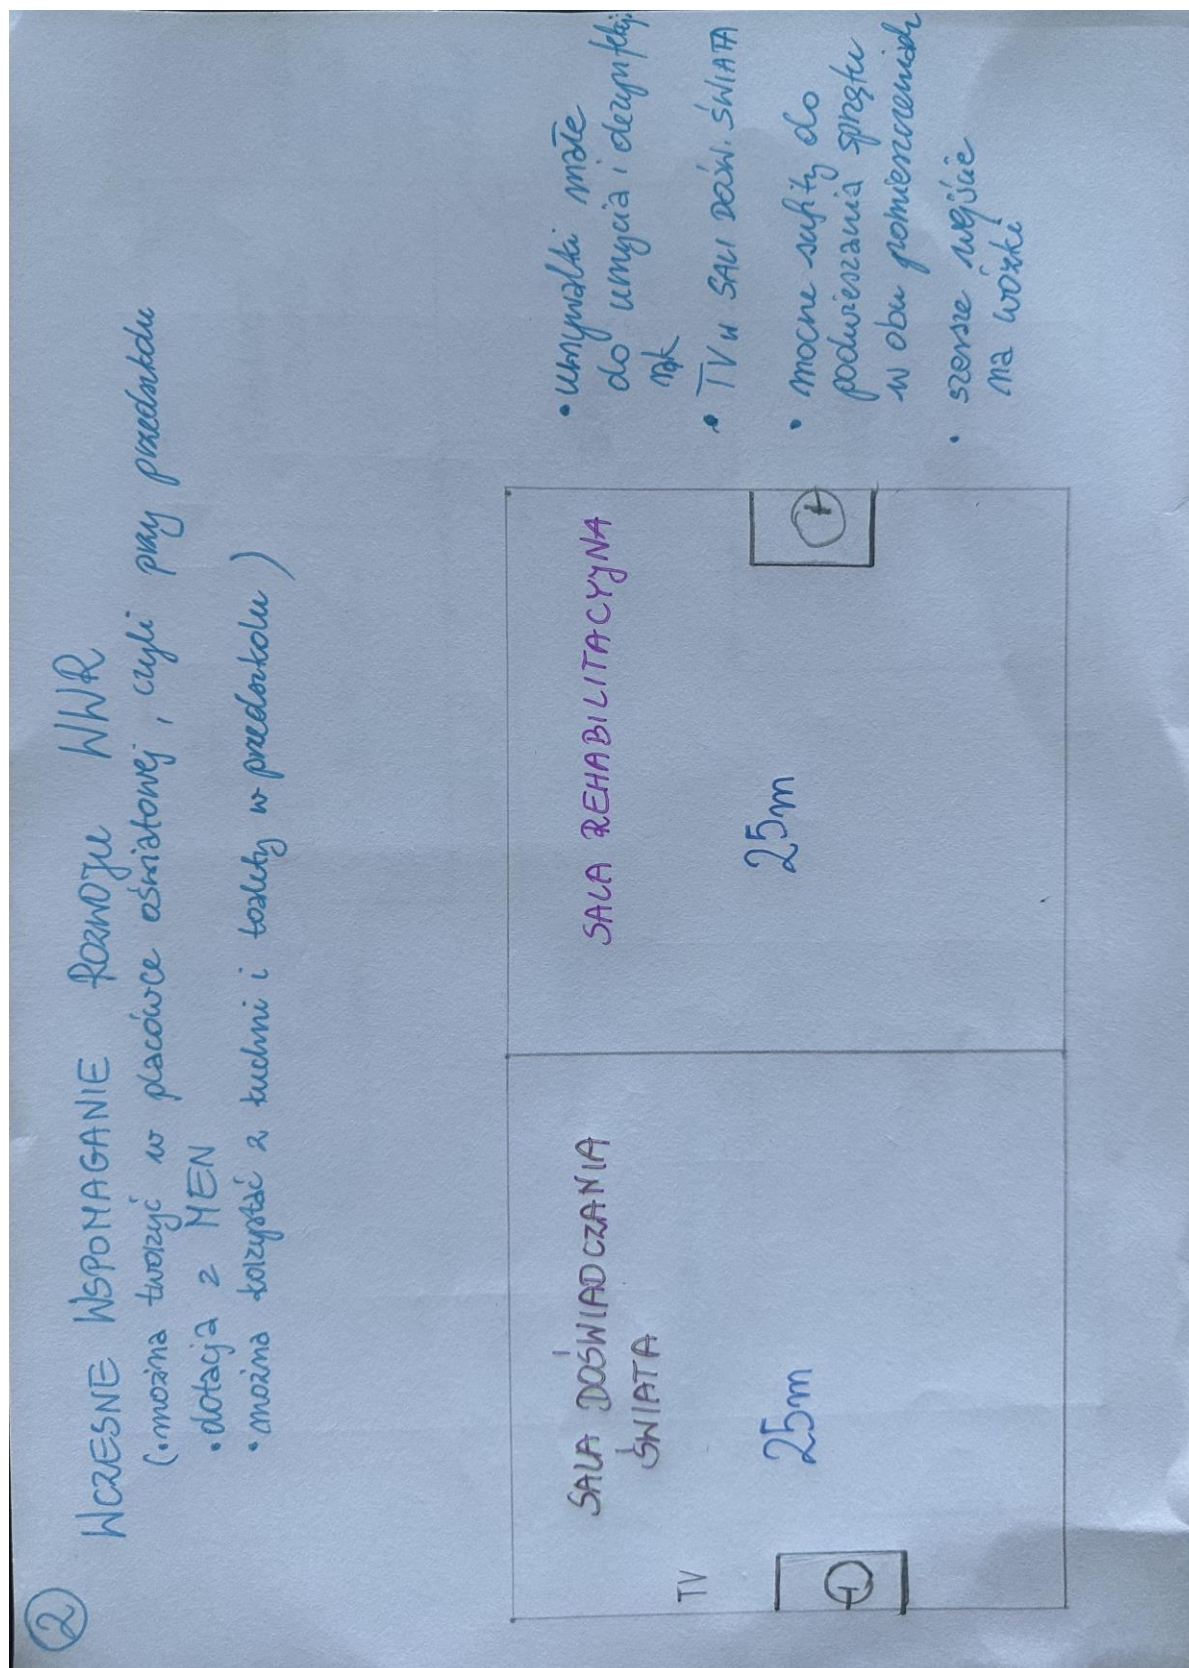 2
WCZESNE WSPOMAGANIE ROZWOJU WWR
(• można tworzyć w placówce oświatowej, czyli przy przedszkolu
• dotacja z MEN
• można korzystać z kuchni i toalety w przedszkolu)
SALA DOŚWIADCZANIA
ŚWIATA
TV
25m
SALA REHABILITACYJNA
25m
• umywalki małe
do umycia i dezynfekcji
rąk
• TV w SALI DOŚW. ŚWIATA
• mocne sufity do
podwieszania sprzętu
w obu pomieszczeniach
• szersze wejście
na wózki